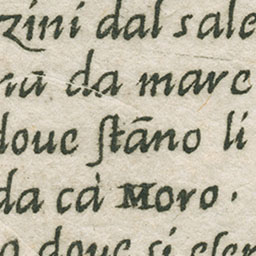 zini dal sale
na da marc
doue stāno li
da cà Moro.
o doue si eser